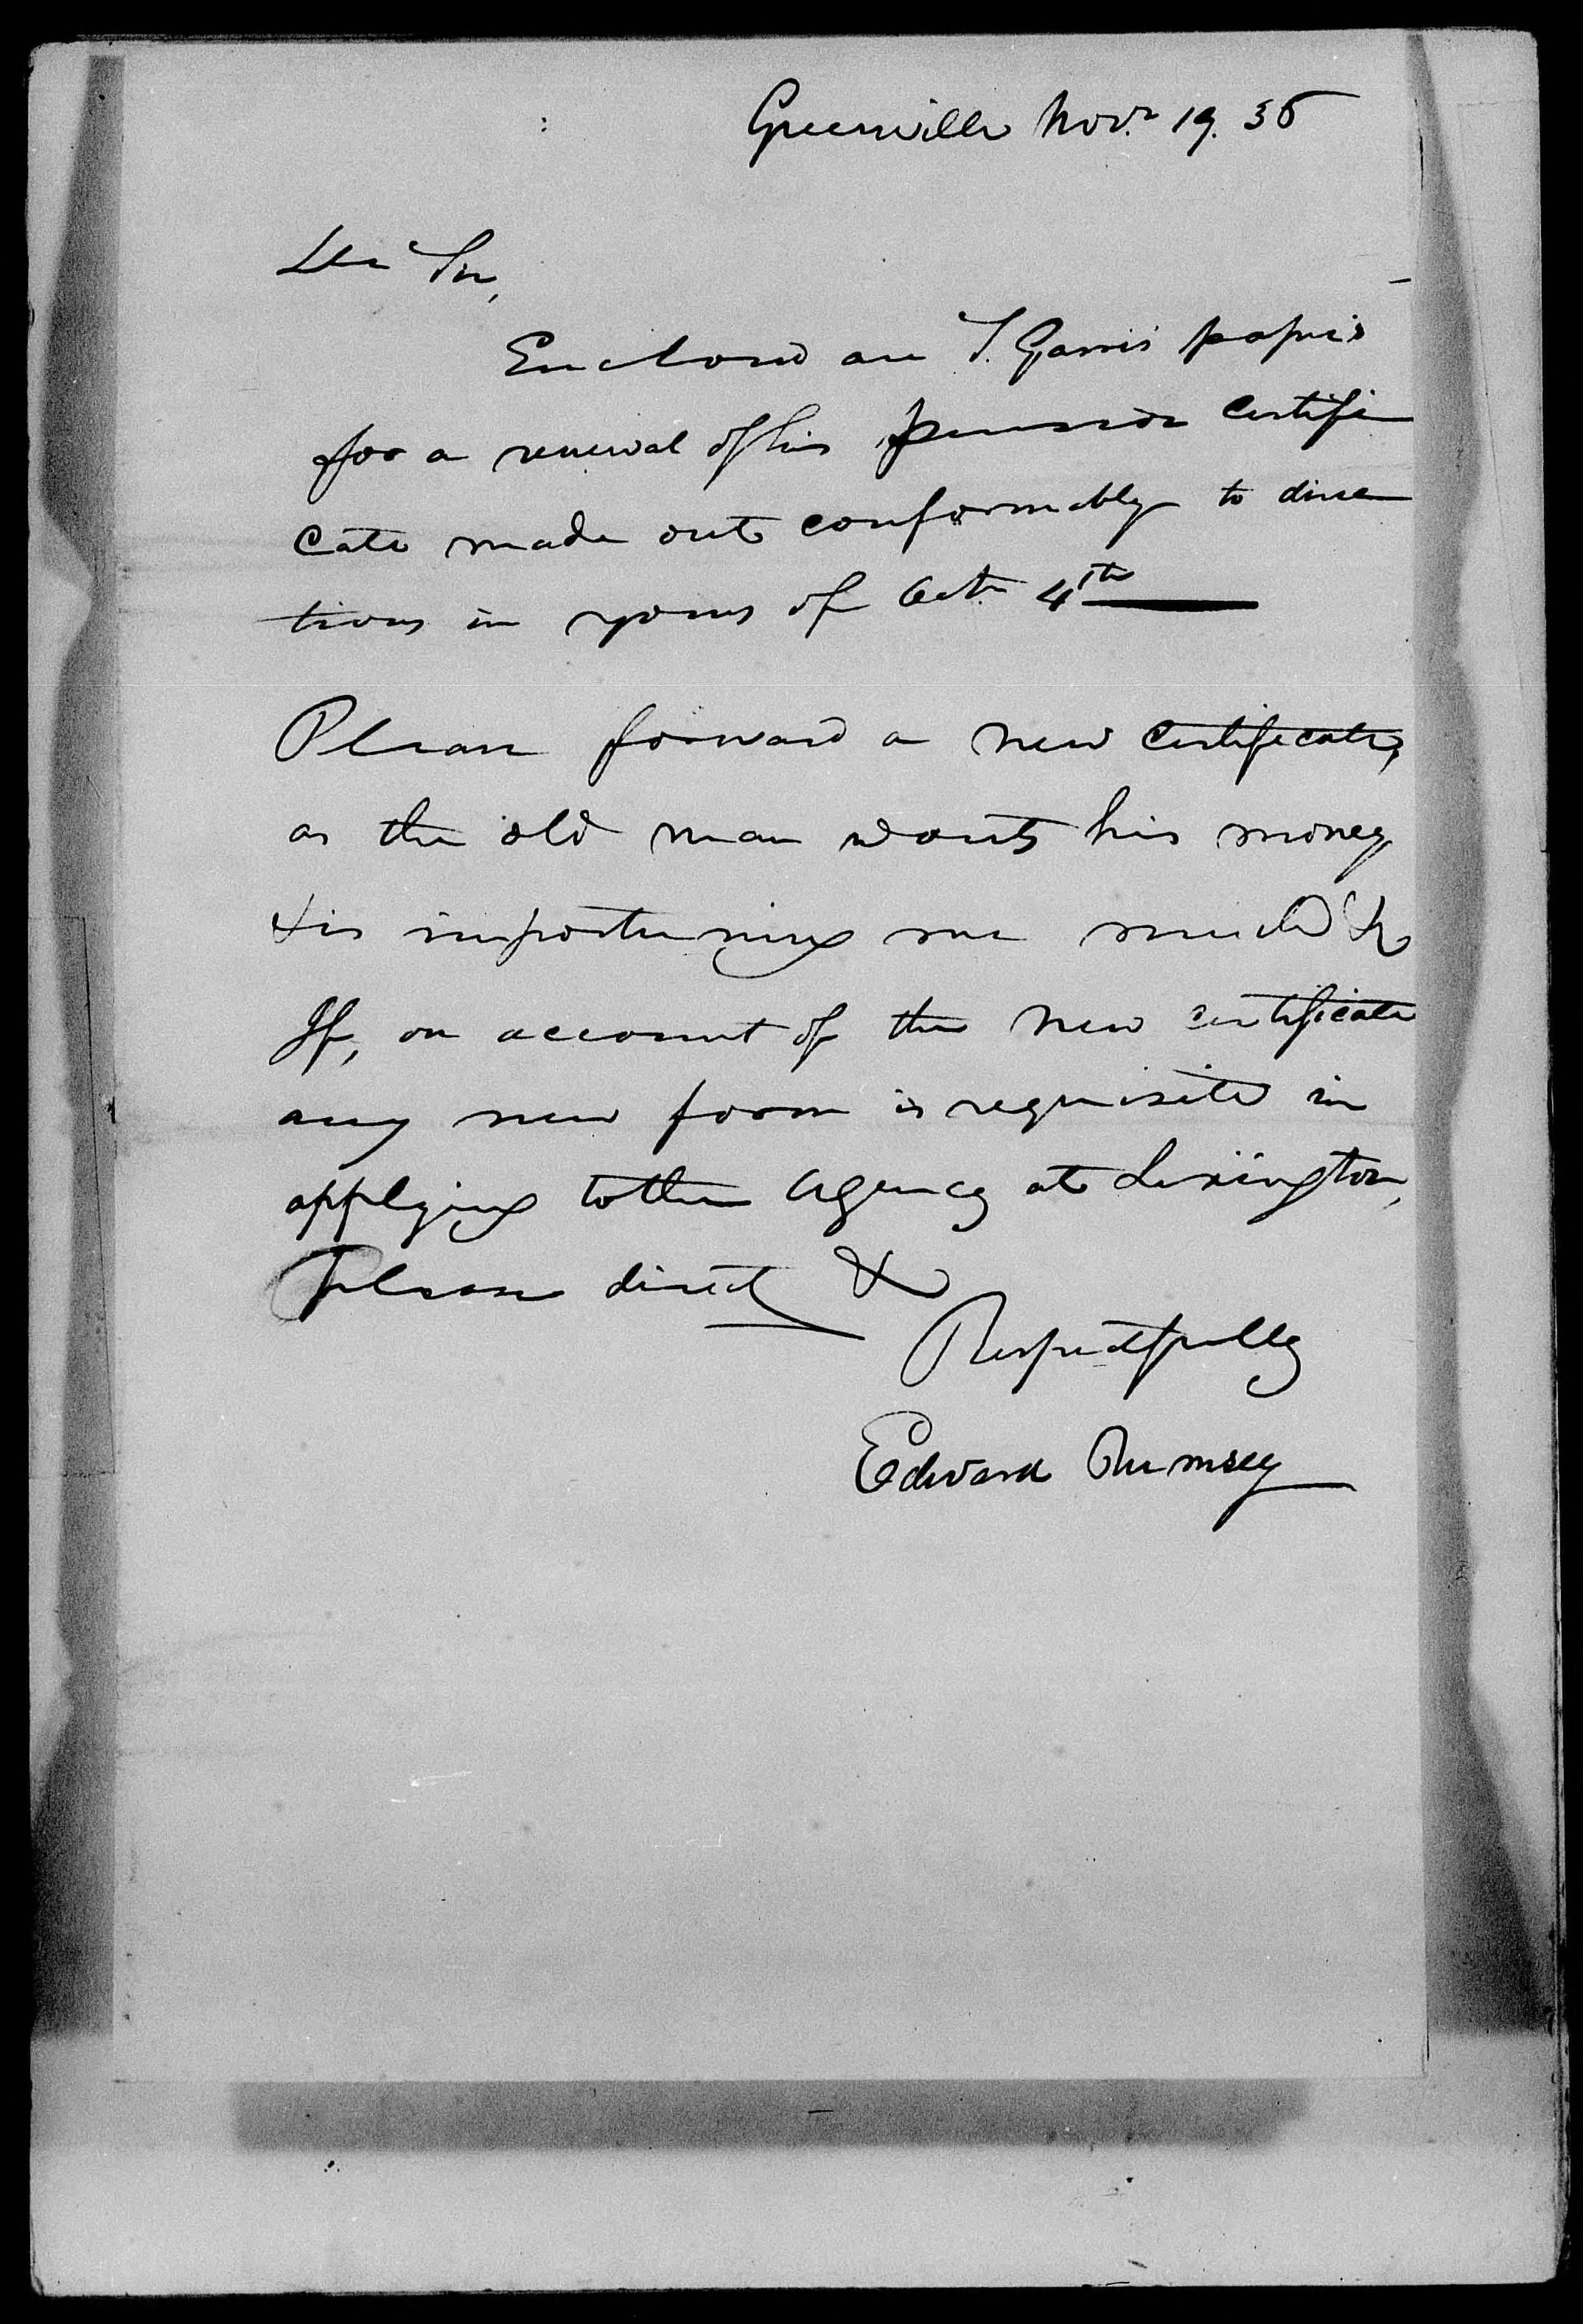 Greenville Novr. 19. 36
Dr Sir,
Enclosed are S. Garris papers
for a renewal of his pension certifi
cate made out conformably to direc
tions in yours of Octr. 4th
Please forward a new certificate,
as the old man wants his money
& is importuning me much &c
If, on account of the new certificate
any new form is requisite in
applying to the agency at Lexington,
please direct &c
Respectfully
Edward Rumsey